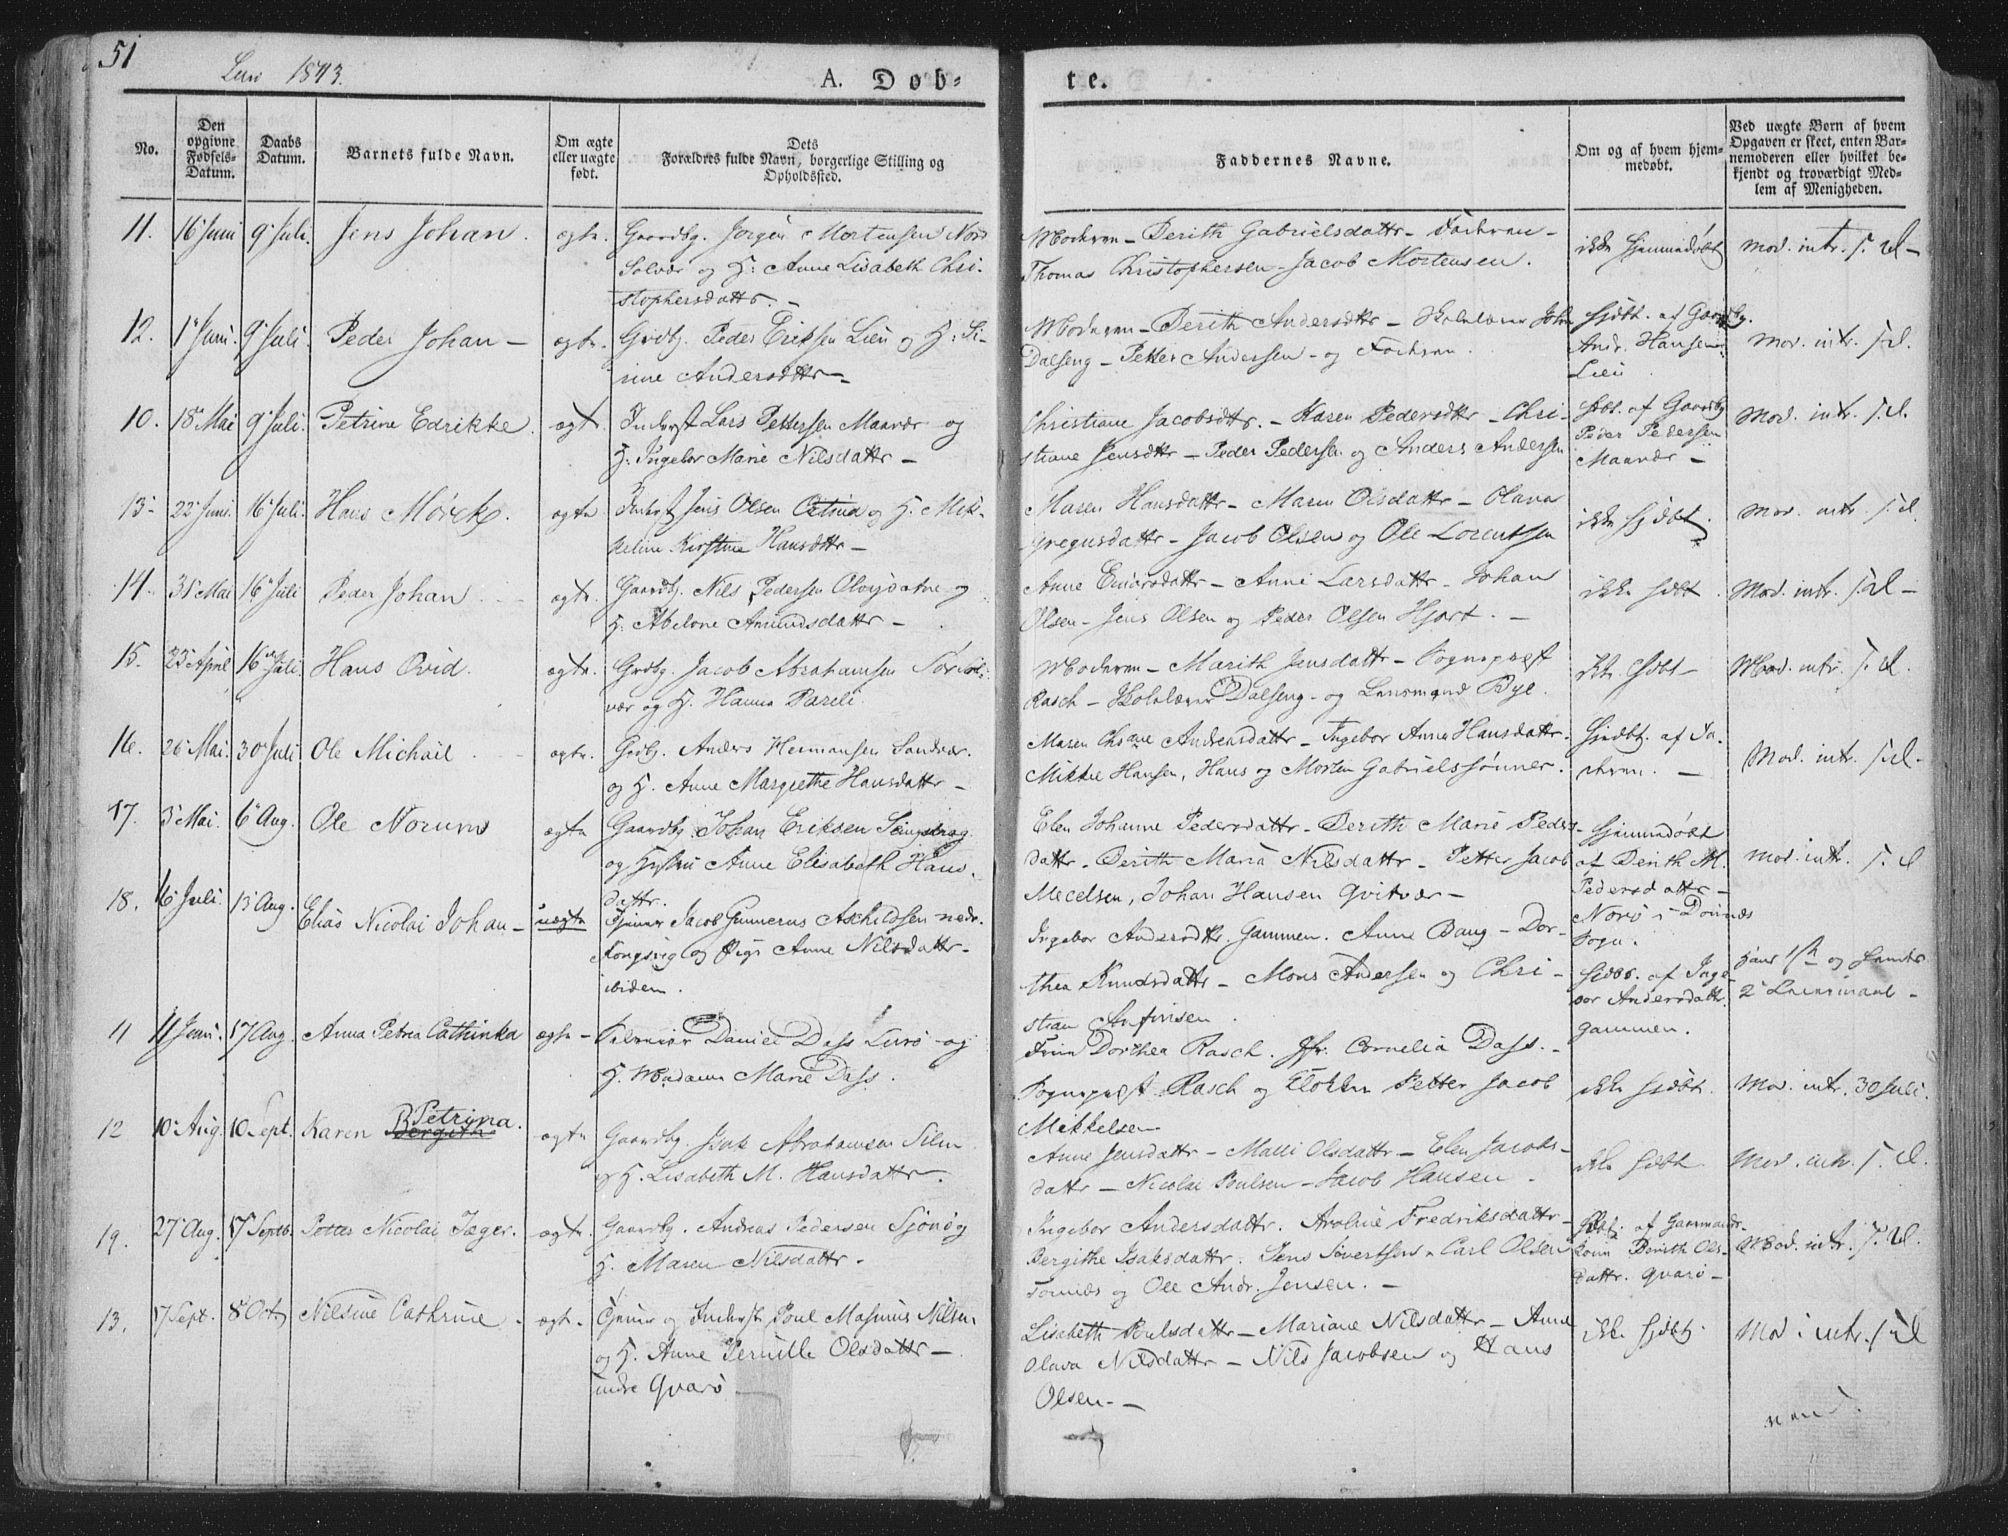 51
Lurö 1843.
A. Døb-
te.
No.
Den opgivne Fødsels-Datum.
Daabs Datum.
Barnets fulde Navn.
Om ægte eller uægte født.
Dets Forældres fulde Navn, borgerlige Stilling og Opholdssted.
Faddernes Navne.
Om og af hvem hjemmedøbt.
Ved uægte Børn af hvem Opgaven er skeet, enten Barnemoderen eller hvilket bekjendt og troværdigt Medlem af Menigheden.
11. 16 Juni 9 Juli. Jens Johan. ægte. Gaardbg. Jørgen Mortensen Nord
Solvær og H. Anne Lisabeth Chri-
stophersdattr. –
Moderen – Berith Gabrielsdattr – Faderen –
Thomas Christophersen – Jacob Mortensen.
ikke hjemmedøbt
Mod. intr. s. d. –
12. 1 Juni. 9 Juli. Peder Johan – ægte. Grdbg. Peder Eriksen Lien og H. Si-
rine Andersdttr –
Moderen – Berith Andersdttr – Skolelærer John
Dalseng – Petter Andersen – og Faderen.
hjdbt. af Gaardbg.
Andr. Hansen
Lien
Mod. intr. s. d.
10. 18 Mai 9 Juli. Petrine Edrikke. ægt. Inderst Lars Pettersen Maavær og
H. Ingebor Marie Nilsdattr –
Christiane Jacobsdtr. – Karen Pedersdttr – Chri-
stiane Jensdttr – Peder Pedersen og Anders Andersen
hdbt. af Gaardbg
Peder Pedersen
Maavær –
Mod. intr. s. d.
13. 22 Juni. 16 Juli. Hans Mørck. ægte Inderst Jens Olsen og H. Mek-
keline Kirstine Hansdttr –
Maren Hansdattr – Maren Olsdattr – Olava
Gregusdattr – Jacob Olsen og Ole Lorentsen
ikke hjdbt.
Mod. intr. s. d.
14. 31 Mai 16 Juli Peder Johan ægte. Gaardbg. Nils Pedersen og
H. Abelone Amundsdattr –
Anne – Anne Larsdattr – Johan
Olsen – Jens Olsen og Peder Olsen Hjort. –
ikke hdbt.
Mod. intr. s. d. –
15. 23 April 16 Juli. Hans Ovid. ægte. Grdbg. Jacob Abrahamsen Sør Sol-
vær og H. Hanna Pareli
Moderen – Marith Jensdattr – Sognepræst
Rasch – Skolelærer Dalseng – og Lensmand Bye.
ikke hjdbt –
Mod. intr. s. d.
16. 26 Mai. 30 Juli Ole Michail ægte. Grdbg. Anders Hermansen Sandvær.
og H. Anne Margrethe Hansdattr –
Maren Andreasdattr – Ingebor Anna Hansdattr.
Mikkel Hansen, Hans og Morten Gabrielssønner.
hjdbt. af Fa-
deren. –
Mod. intr. s. d. –
17. 3 Mai. 6 Aug. Ole Norum ægte Gaardbg. Johan Eriksen
og Hustru Anne Elisabeth Hans-
dattr.
Elen Johanne Pedersdattr – Berith Marie Peders-
dattr – Berith Maria Nilsdattr – Petter Jacob
Mecelsen, Johan Hansen Qvitvær –
hjemmedøbt
af Berith M.
Pedersdattr –
Norø i Dønnes
Sogn.
Mod. intr. s. d
18. 6 Juli. 13 Aug. Elias Nicolai Johan – uægte Tjener Jacob Gunnerus Aschildsen nedr.
Kongsvig og Pige Anne Nilsdattr –
ibidem.
Ingebor Andersdtr. Gammen. Anne Bang – Dor-
thea Knudsdattr – Mons Andersen og Chri-
stian Anfinsen.
hjdbt. af Inge-
bor Andersdattr.
Gammen.
hans 1ste og hendes
2 Leiermaal –
11 11 Juni. 17 Aug. Anna Petrea Cathinka ægte – Daniel Dass Lurö – og
H. Madam Marie Dass.
Frue Dorthea Rasch. Jfr. Cornelia Dass. –
Sognepræst Rasch og Klokker Petter Jacob
Mikkelsen
ikke hjdbt.
Mod. intr. 30 Juli.
12 10 Aug. 10 Sept. Karen Petrina. Bergith ægte Gaardbg. Isak Abrahamsen
og H. Lisabeth M. Hansdattr.
Anne Jensdattr – Malli Olsdattr – Elen Jacobs-
dattr – Nicolai Poulsen – Jacob Hansen –
ikke hdbt.
Mod. intr. s. d.
19. 27 Aug. 17 Septb. Petter Nicolai Jæger. ægte. Gaardbg. Andreas Pedersen Sjonø og
H. Maren Nilsdattr –
Ingebor Andersdattr. Fredriksdattr –
Bergithe Isaksdattr. Jens Sivertsen – Carl Olsen
og Ole Andr. Jensen. –
af Gaardmands-
kone Berith Ols-
dattr. Qvarø –
Mod. intr. s. d.
13. 17 Sept. 8 Oct. Nilsine Cathrine – ægte. Tjener og Inderst Poul Masimus Nilsen
og H. Anne Pernille Olsdattr –
indre Qvarø
Lisabeth Poulsdattr – Mariane Nilsdattr – Anne
Olava Nilsdattr – Nils Jacobsen og Hans
Olsen. –
ikke hjdbt.
Mod. intr. s. d